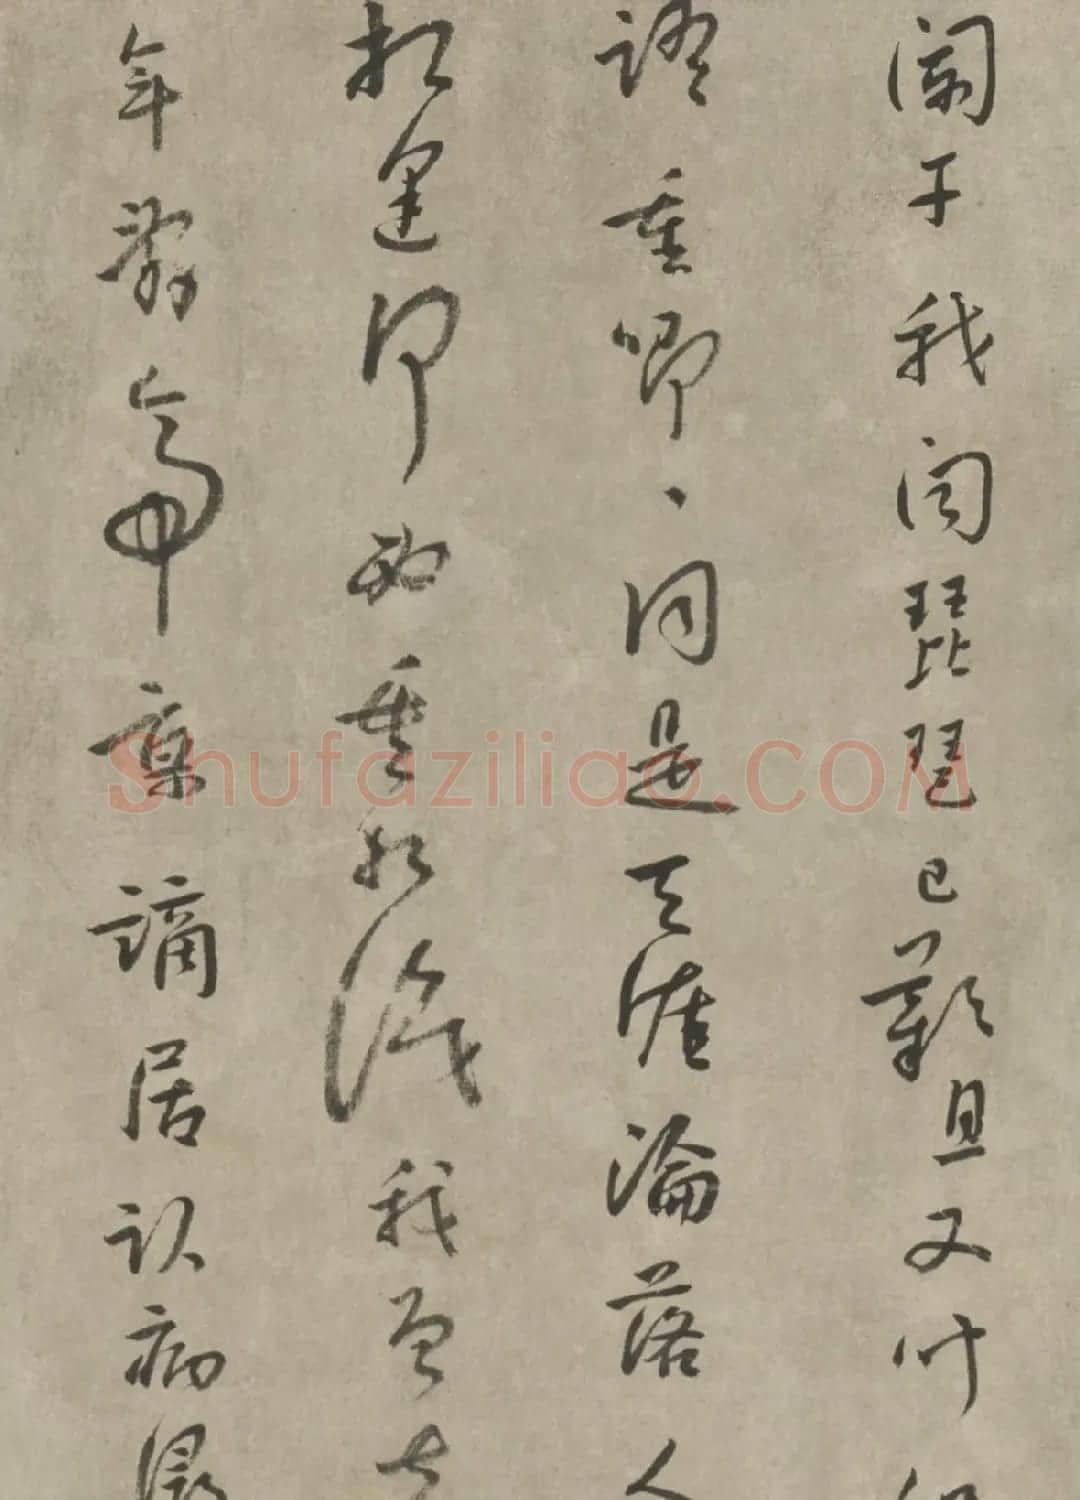 闌干我聞琵琶已歎息又
語重唧、同是天涯淪落人
相逢何必曾相識我從去
年辭帝京謫居臥病潯
Shufaziliao.COM